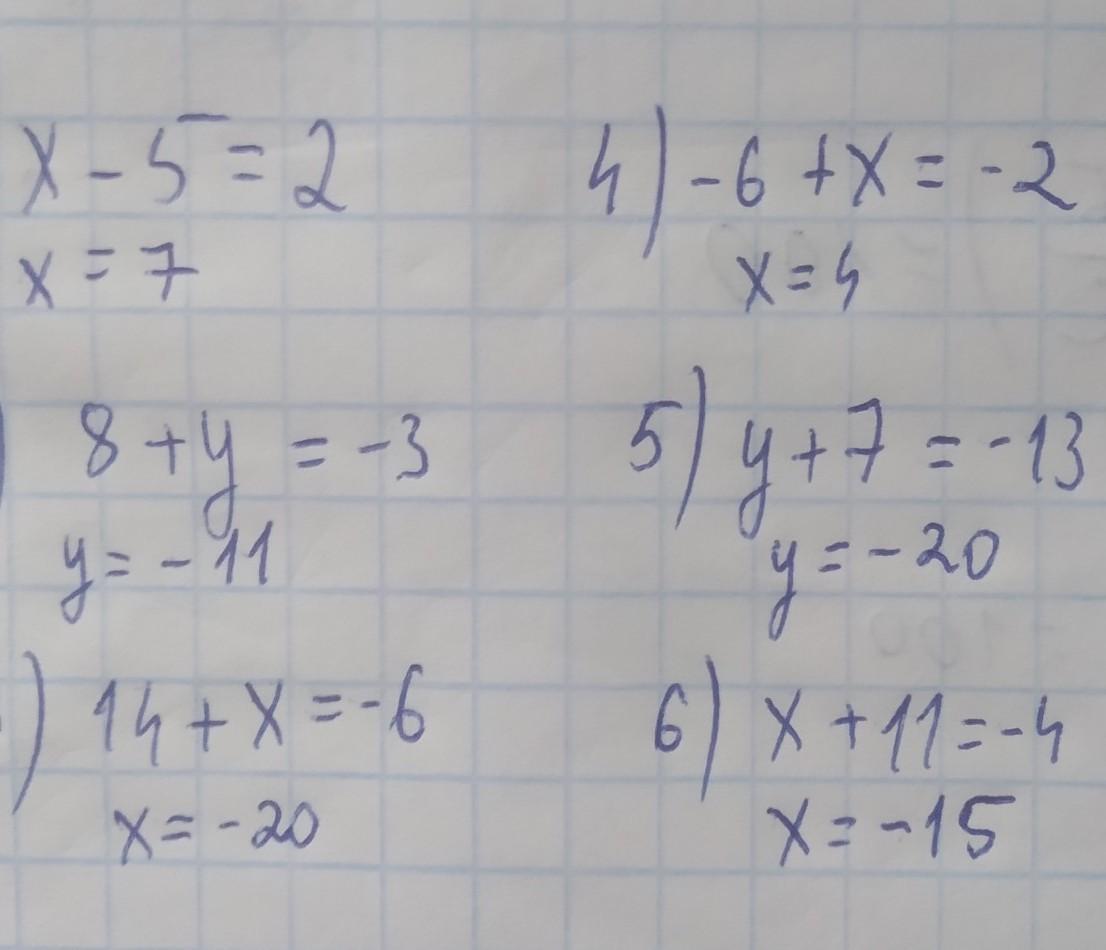 x - 5 = 2
x = 7
) 8 + y = -3
y = -11
) 14 + x = -6
x = -20
4) -6 + x = -2
x = 4
5) y + 7 = -13
y = -20
6) x + 11 = -4
x = -15